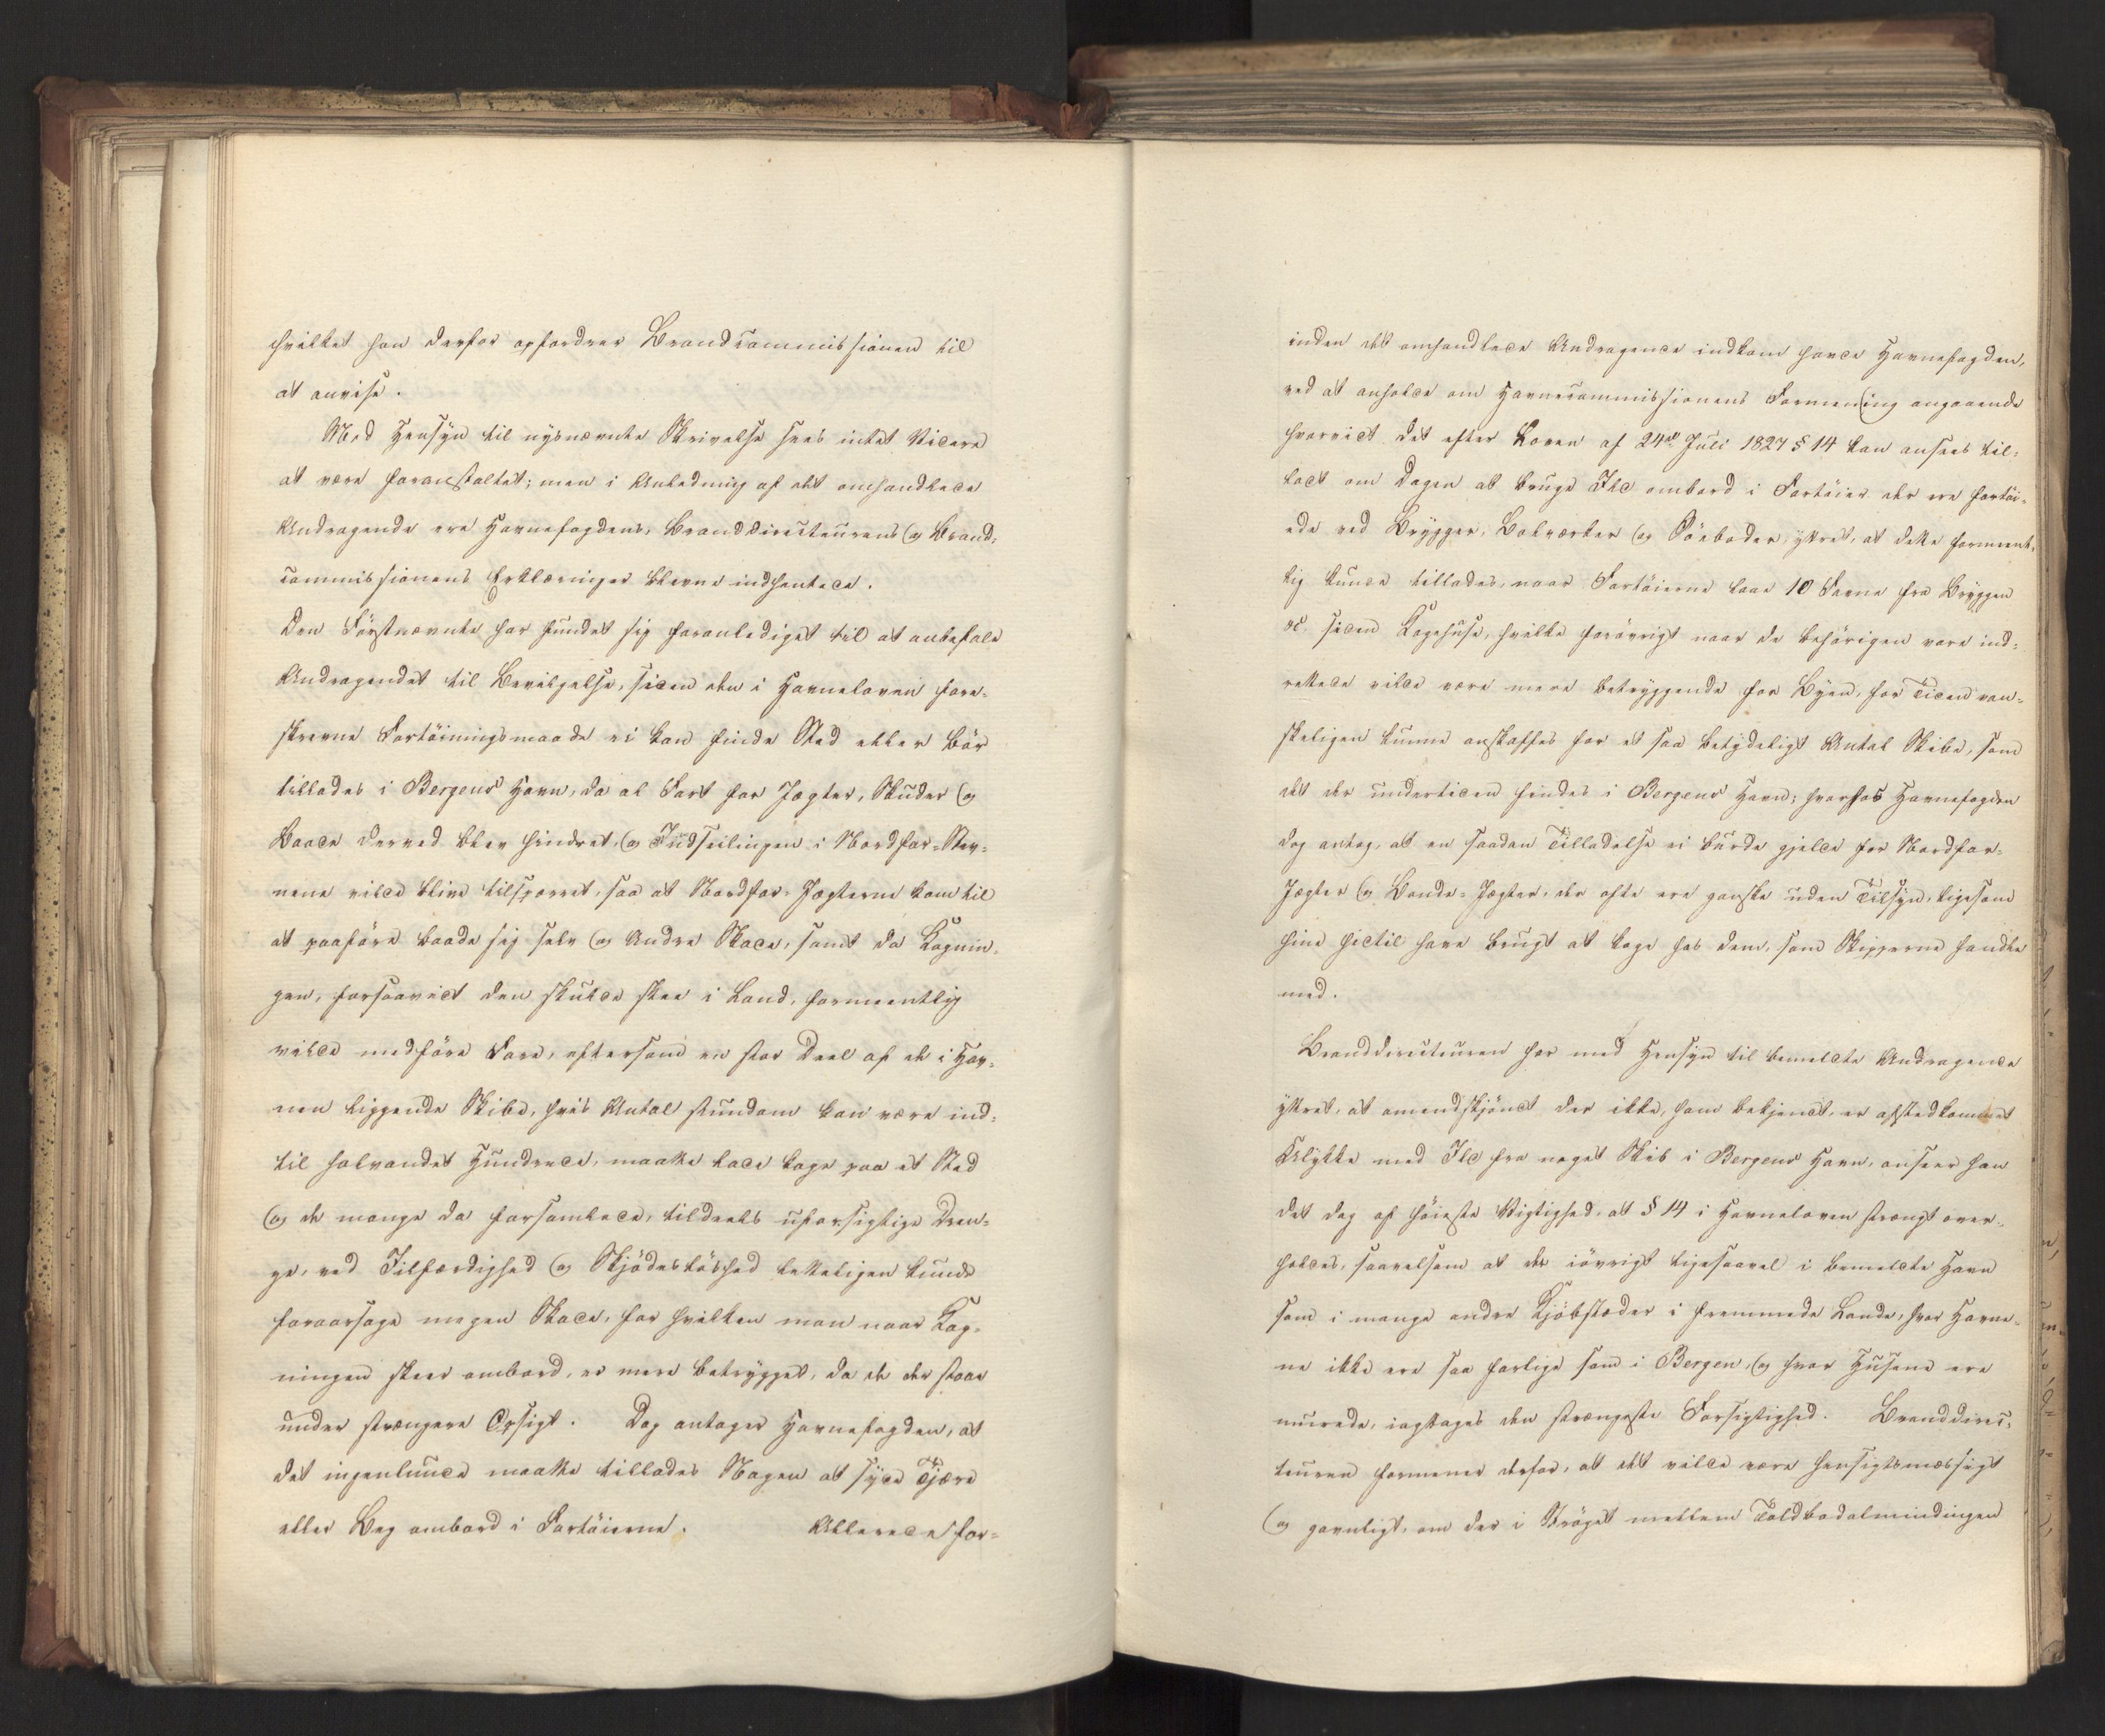 hvilket han derfor opfordrer Brandcommissionen til
at anvise.
Med Hensyn til nysnævnte Skrivelse sees intet Videre
at være foranstaltet; men i Anledning af det omhandlede
Andragende ere Havnefogdens, Branddirecteurens og Brand-
commissionens Erklæringer blevne indhentede.
Den Førstnævnte har fundet sig foranlediget til at anbefale
Andragendet til Bevilgelse, siden den i Havneloven fore-
skrevne Fortøiningsmaade ei kan finde Sted eller bör
tillades i Bergens Havn, da al Fart for Jægter, Skuder og
Baade derved blev hindret, og Indseilingen i Nordfar-Stev-
nene vilde blive tilsperret, saa at Nordfar-Jægterne kom til
at paaføre baade sig selv og Andre Skade, samt da Kognin-
gen, forsaavidt den skulde skee i Land, formeentlig
vilde medføre Fare, eftersom en stor Deel af de i Hav-
nen liggende Skibe, hvis Antal stundom kan være ind-
til halvandet Hundrede, maatte lade koge paa et Sted
og de mange da forsamlede, tildeels uforsigtige Dren-
ge, ved Ilfærdighed og Skjødesløshed letteligen kunde
foraarsage megen Skade, for hvilken man naar Kog-
ningen skeer ombord, er mere betrygget, da de der staae
under strængere Opsigt. Dog antager Havnefogden, at
det ingenlunde maatte tillades Nogen at syde Tjære
eller Beg ombord i Fartøierne. Allerede for-
inden det omhandlede Andragende indkom havde Havnefogden,
ved at anholde om Havnecommissionens Formening angaaende
hvorvidt det efter Loven af 24de Juli 1827 § 14 kan ansees til-
ladt om Dagen at bruge Ild ombord i Fartøier der ere fortøi-
ede ved Brygger, Bolværker og Søeboder, yttret, at dette formeent-
lig kunde tillades, naar Fartøierne laae 10 Favne fra Bryggen
&c. siden Kogehuse, hvilke forøvrigt naar de behørigen vare ind-
rettede vilde være mere betryggende for Byen, for Tiden van-
skeligen kunne anskaffes for et saa betydeligt Antal Skibe, som
det der undertiden findes i Bergens Havn; hvorhos Havnefogden
dog antog, at en saadan Tilladelse ei burde gjelde for Nordfar-
Jægter og Bonde-Jægter, der ofte ere ganske uden Tilsyn, ligesom
hine hidtil have brugt at koge hos dem, som Skipperne handle
med.
Branddirecteuren har med Hensyn til bemeldte Andragende
yttret, at omendskjøndt der ikke, ham bekjendt, er afstedkommet
Ulykke med Ild fra noget Skib i Bergens Havn, anseer han
det dog af høieste Vigtighed, at § 14 i Havneloven strængt over-
holdes, saavelsom at der iøvrigt ligesaavel i bemeldte Havn
som i mange andre Kjøbstæder i fremmede Lande, hvor Havne-
ne ikke ere saa farlige som i Bergen, og hvor Husene ere
murede, iagttages den strængeste Forsigtighed. Branddirec-
teuren formener derfor, at det vilde være hensigtsmæssigt
og gavnligt, om der i Strøget mellem Toldbodalmindingen